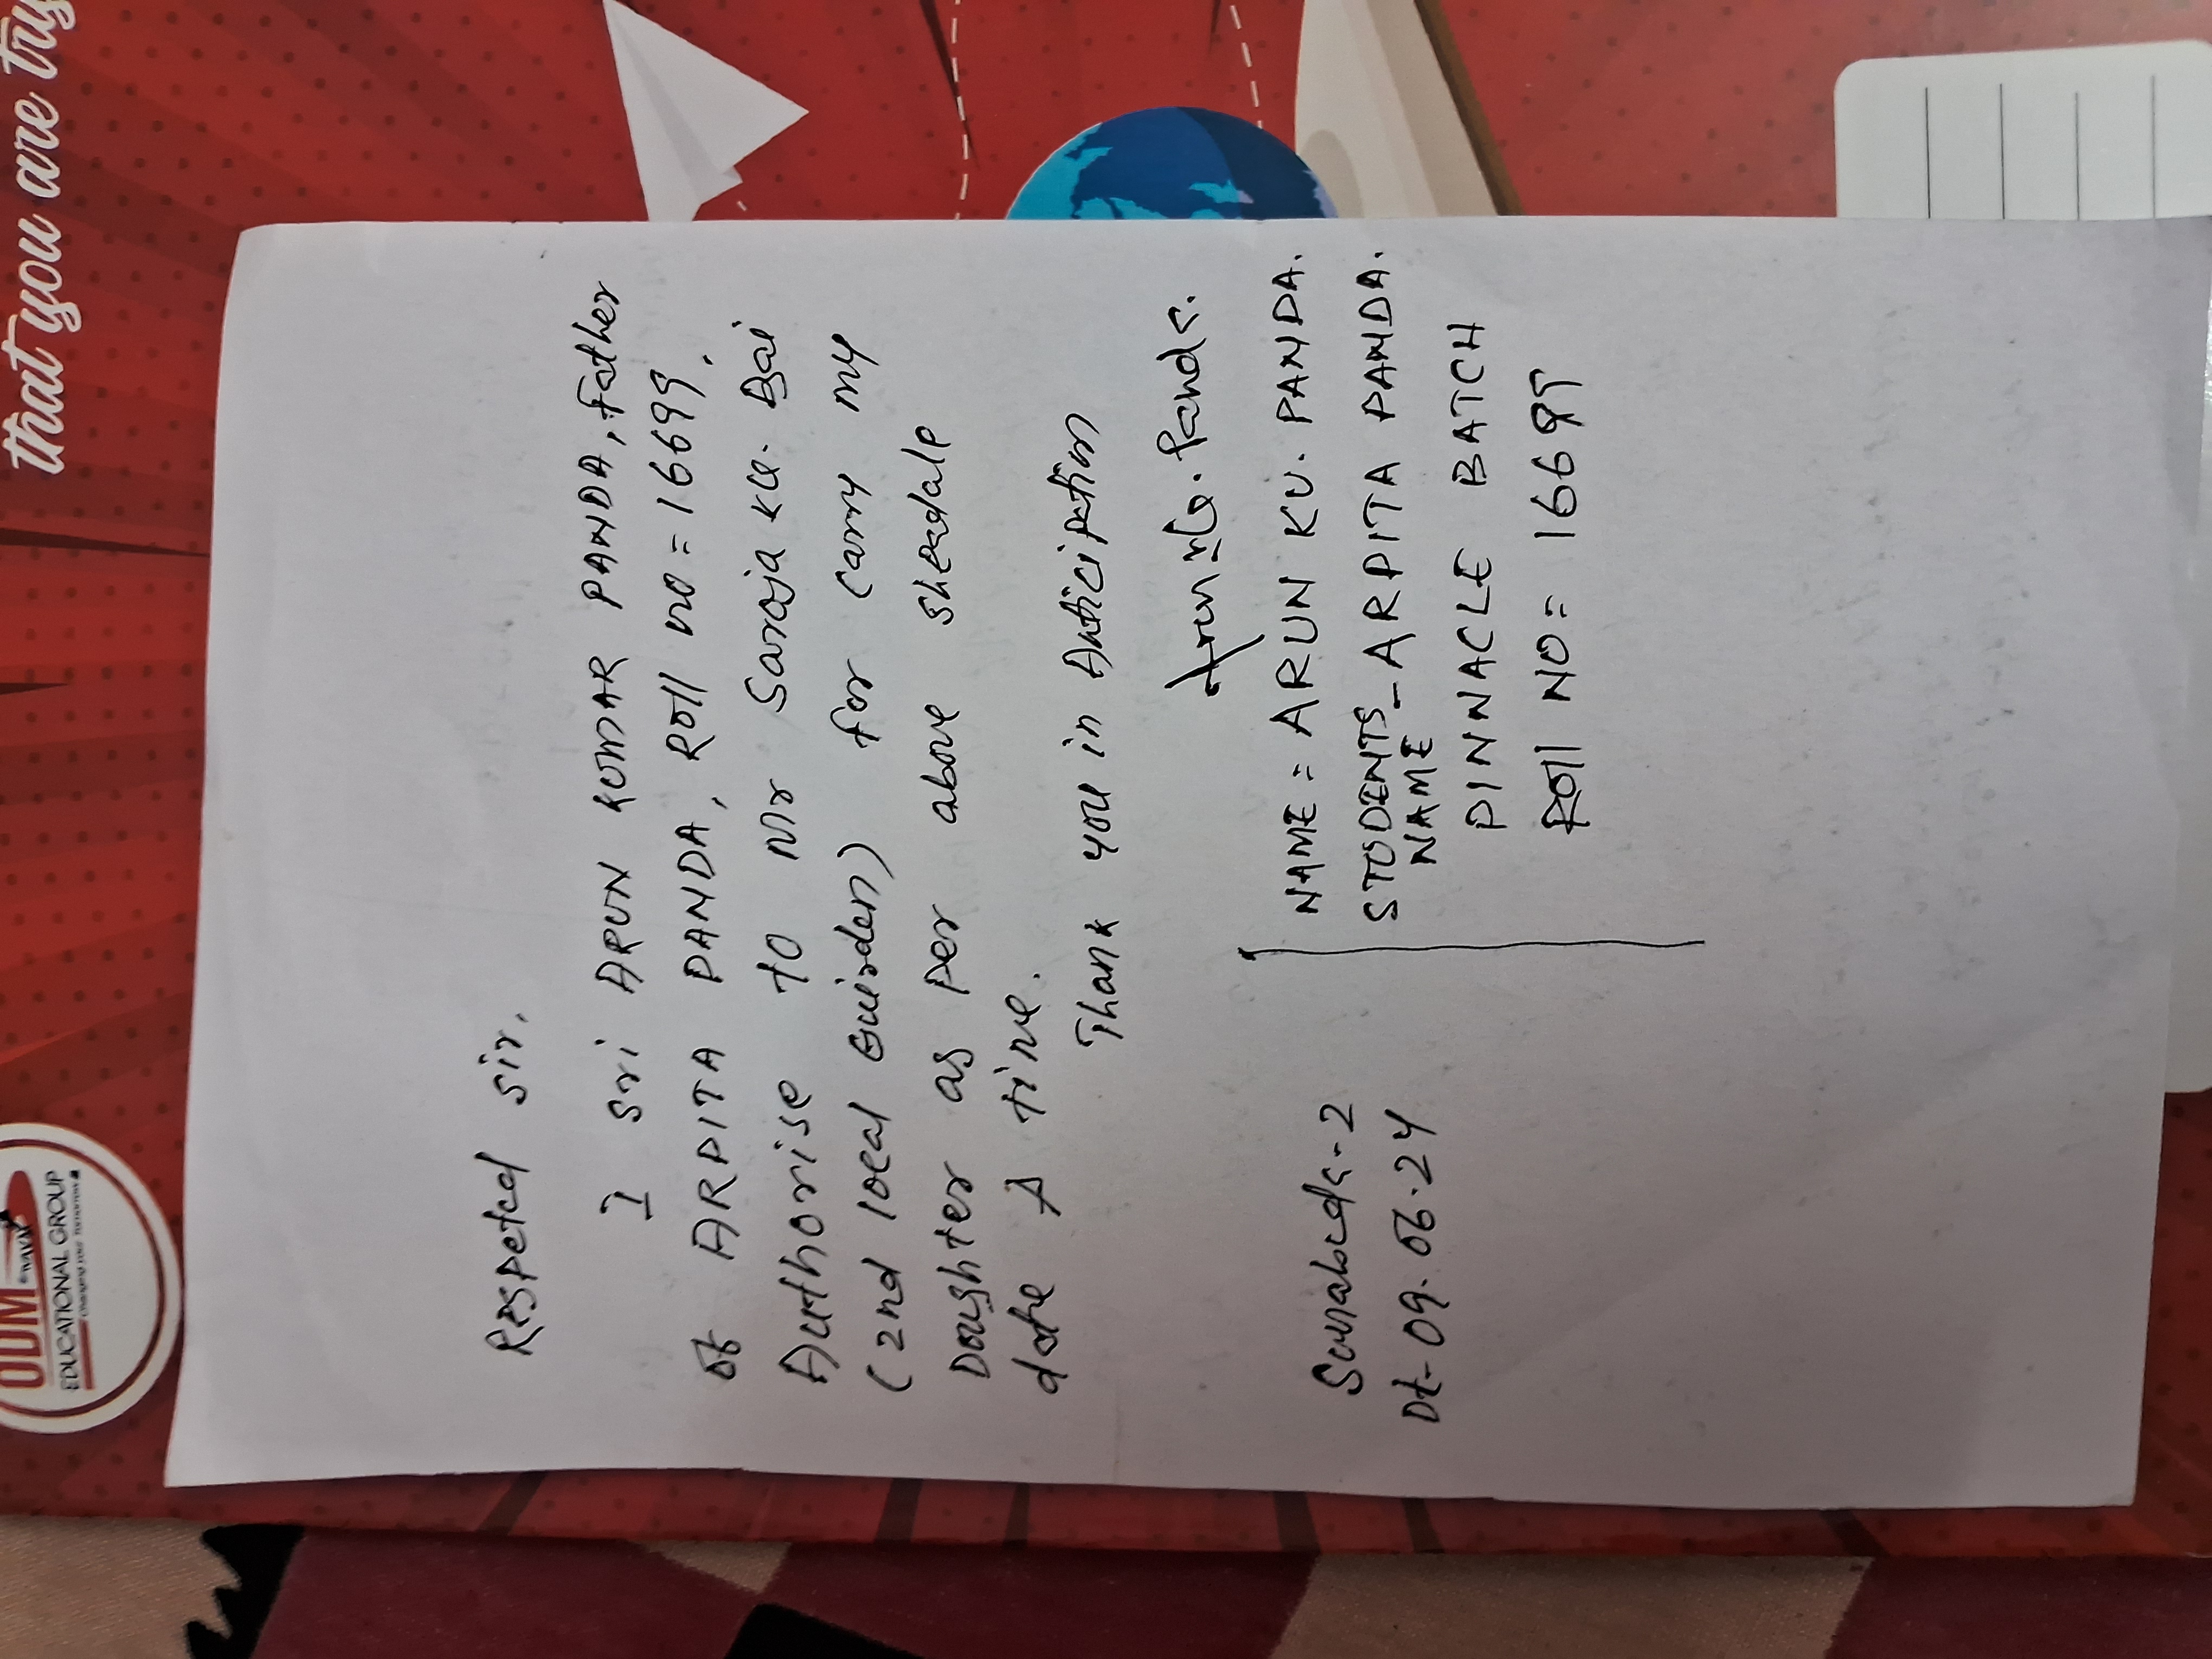 that you are try
ODM
EDUCATIONAL GROUP
Respeted Sir,
I Sri ARUN KUMAR PANDA, Father
of ARPITA PANDA, Roll no = 16699,
Authorise to Mr Saroja Ku. Bai
(2nd local Guirden) for carry my
Doughter as per above Sheadale
date & time.
Thank you in Anticipation
Arun Ku. Panda.
NAME = ARUN KU. PANDA.
STUDENTS NAME - ARPITA PANDA.
PINNACLE BATCH
Roll NO = 16699
Sunabeda-2
Dt- 09.06.24